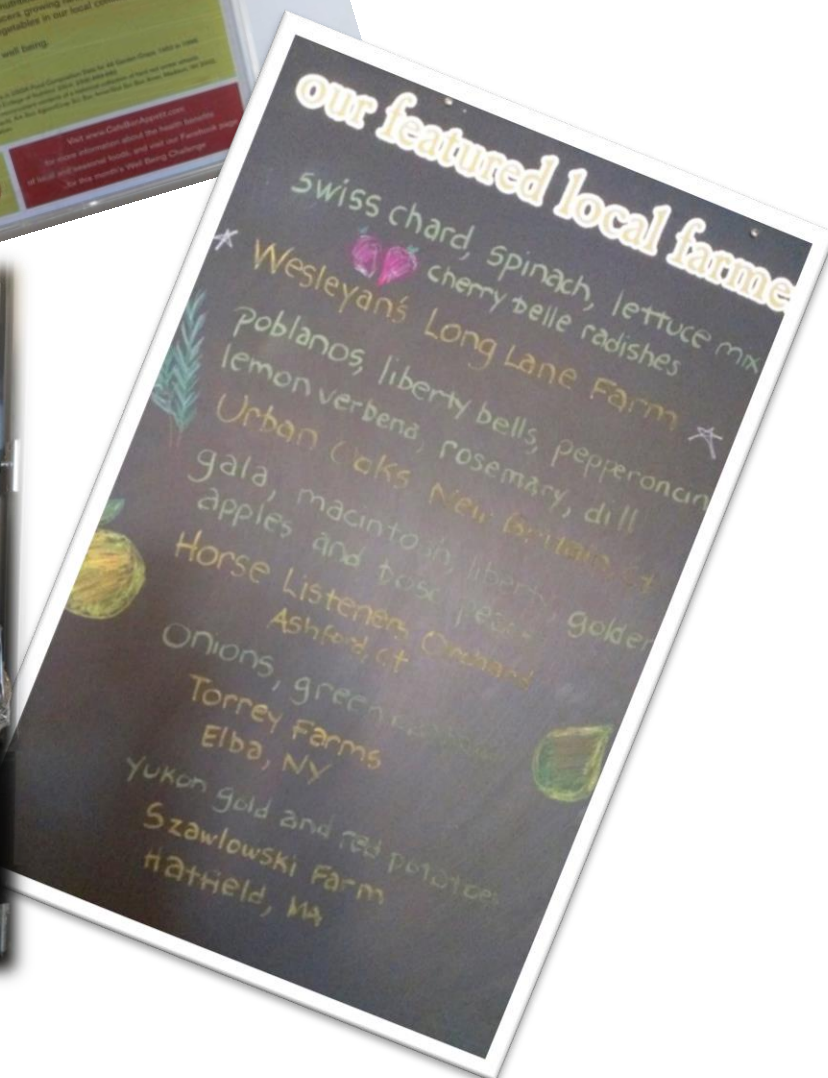 well being.
Visit www.CafeBonAppetit.com
for more information about the health benefits
of local and seasonal foods, and visit our Facebook page
for this month's Well Being Challenge
our featured local farme
swiss chard, spinach, lettuce mix
cherry belle radishes
Wesleyan's Long Lane Farm
poblanos, liberty bells, pepperoncin
lemon verbena, rosemary, dill
Urban Oaks New Britain, ct
gala, macintosh, liberty, golden
apples and bosc pears
Horse Listeners Orchard
Ashford, ct
onions, green
Torrey Farms
Elba, NY
yukon gold and red potatoes
Szawlowski Farm
Hatfield, MA